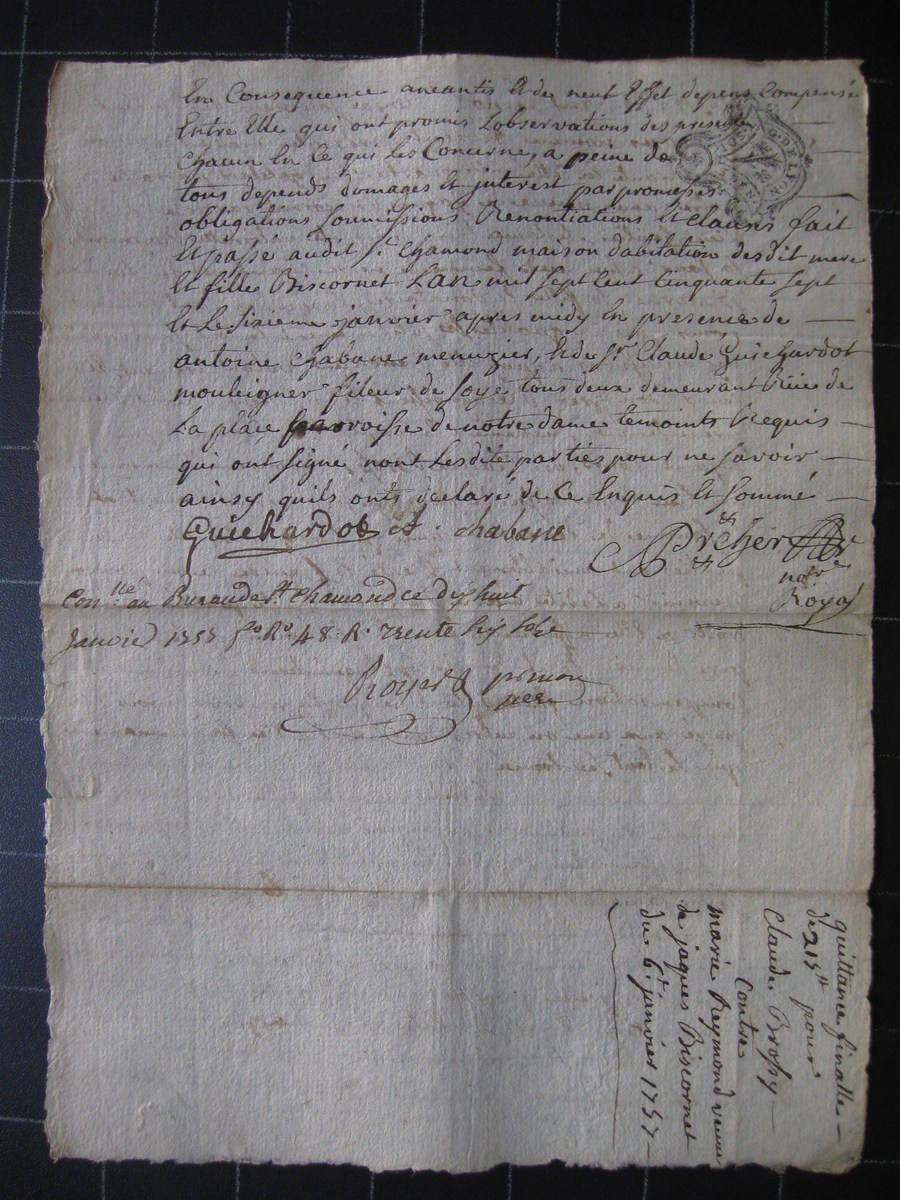 En Consequence aneantis et de neut Effet depens Compensé
Entre Elle qui ont promis Lobservations des presente
chacun En ce qui les Concerne, a peine de
tous depends domages Et interest par promesses
obligations soumissions Renontiations Et clauses fait
Et passé audit St. chamond maison dabitation desdit mere
Et fille Biscornet Lan mil sept Cent Cinquante sept
Et Le sixieme janvier apres midy En presence de
antoine chabane menuzier, et de Sr. Claude Guichardot
mouleigner fileur de soye tous deux demeurant Rüe de
La place parroisse de notre dame temoints Requis
qui ont signé nont Lesdite parties pour ne savoir
ainsy quils onts declaré de Ce Enquis Et sommé
Guichardot A. chabane
Prether
nore
Royal
Conllé au Bureau de St chamond ce dix huit
Janvier 1757 fo. Ro. 48. R. trente six
GN. DE LYON
quittance finalle
de 215tt pour
Claude Brossy
Contre
marie Reymond veuve
de jaques Biscornet
du 6e. janvier 1757